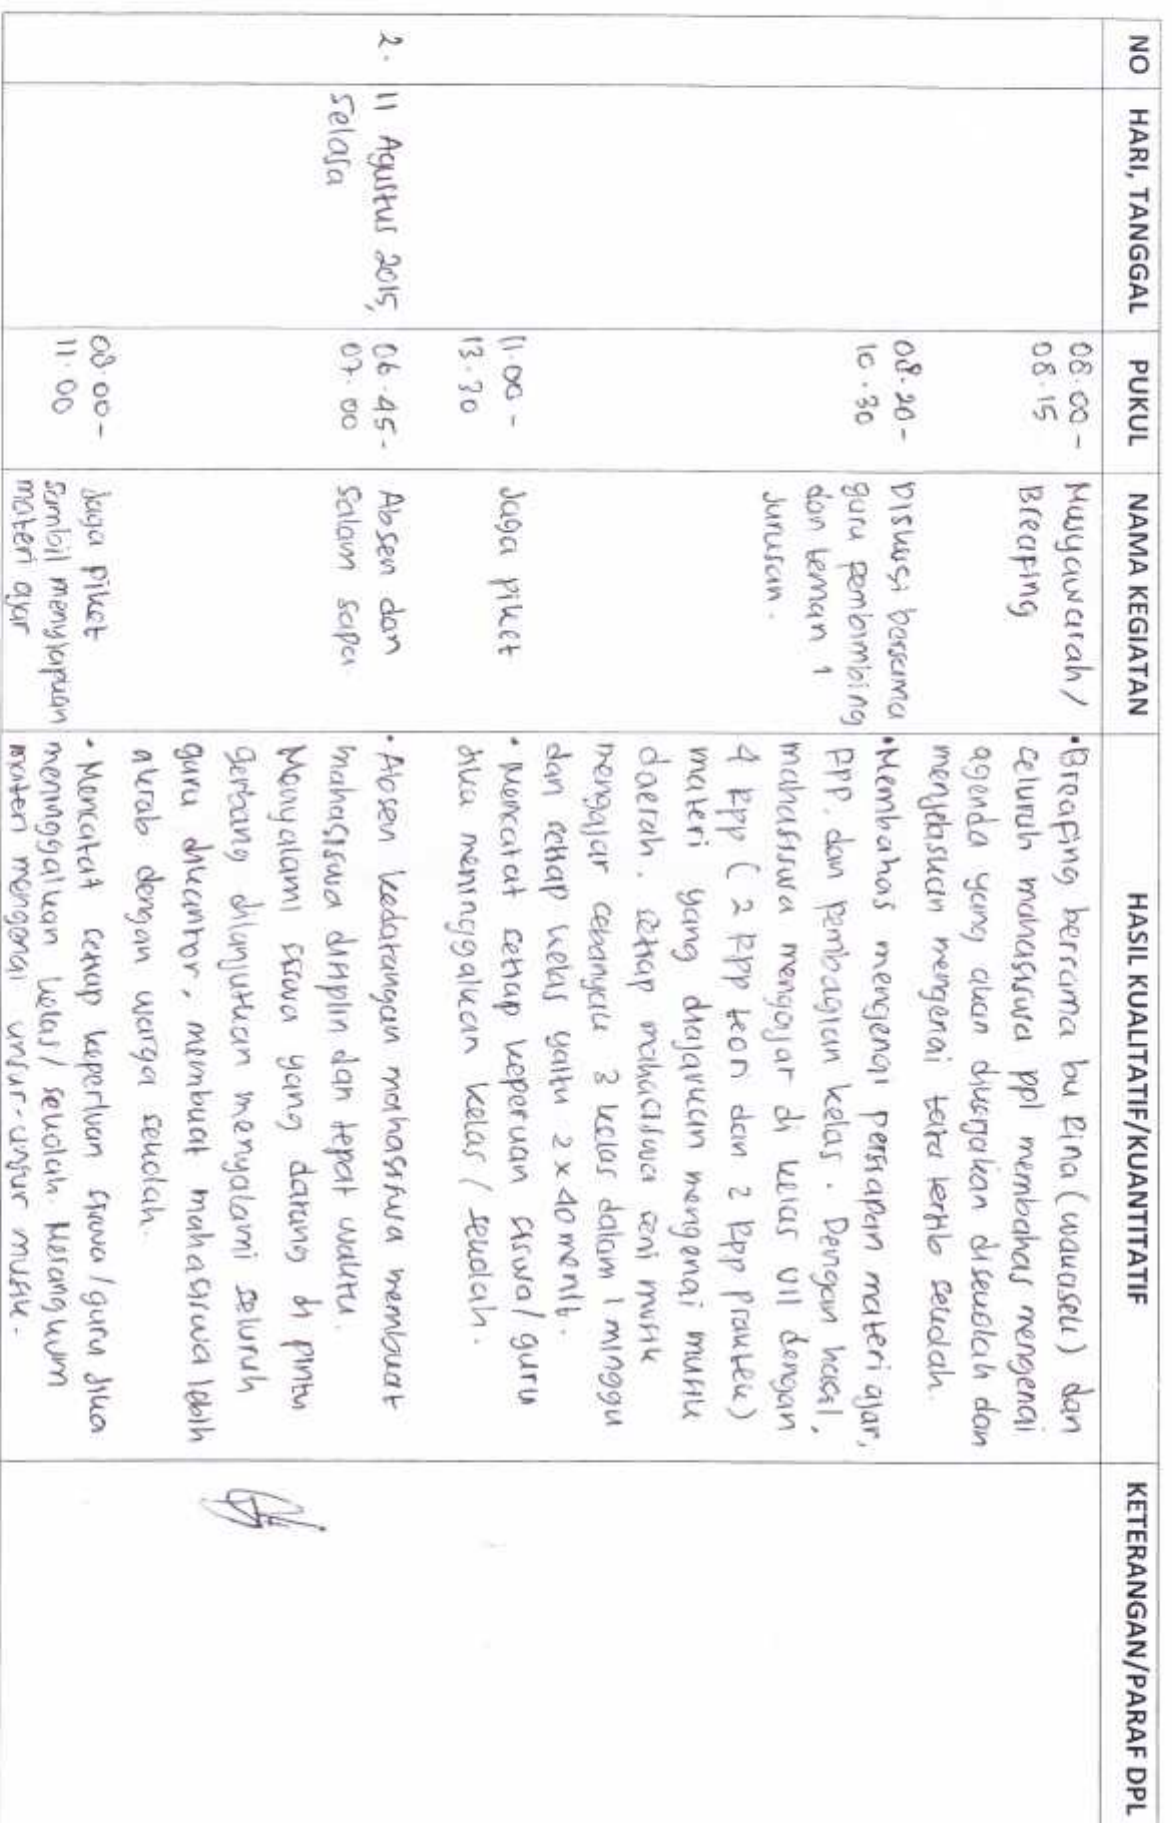 NO HARI, TANGGAL PUKUL NAMA KEGIATAN HASIL KUALITATIF/KUANTITATIF KETERANGAN/PARAF DPL
08.00 -
08.15
Musyawarah/
Breafing
• Breafing bersama bu Rina (wakasek) dan
seluruh mahasiswa ppl membahas mengenai
agenda yang akan dikerjakan disekolah dan
menjelaskan mengenai tata tertib sekolah.
08.20 -
10.30
Diskusi bersama
guru pembimbing
dan teman 1
jurusan.
• Membahas mengenai persiapan materi ajar,
RPP, dan pembagian kelas. Dengan hasil,
mahasiswa mengajar di kelas VII dengan
4 Rpp (2 Rpp teori dan 2 Rpp praktek)
materi yang diajarkan mengenai musik
daerah. setiap mahasiswa seni musik
mengajar sebanyak 3 kelas dalam 1 minggu
dan setiap kelas yaitu 2 x 40 menit.
11.00 -
13.30
Jaga piket
• Mencatat setiap keperluan siswa/guru
jika meninggalkan kelas/sekolah.
2. 11 Agustus 2015,
Selasa
06.45 -
07.00
Absen dan
salam sapa.
• Absen kedatangan mahasiswa membuat
mahasiswa disiplin dan tepat waktu.
Menyalami siswa yang datang di pintu
gerbang dilanjutkan menyalami seluruh
guru dikantor, membuat mahasiswa lebih
akrab dengan warga sekolah.
08.00 -
11.00
Jaga piket
sambil menyiapkan
materi ajar
• Mencatat setiap keperluan siswa/guru jika
meninggalkan kelas/sekolah. Merangkum
materi mengenai unsur-unsur musik.